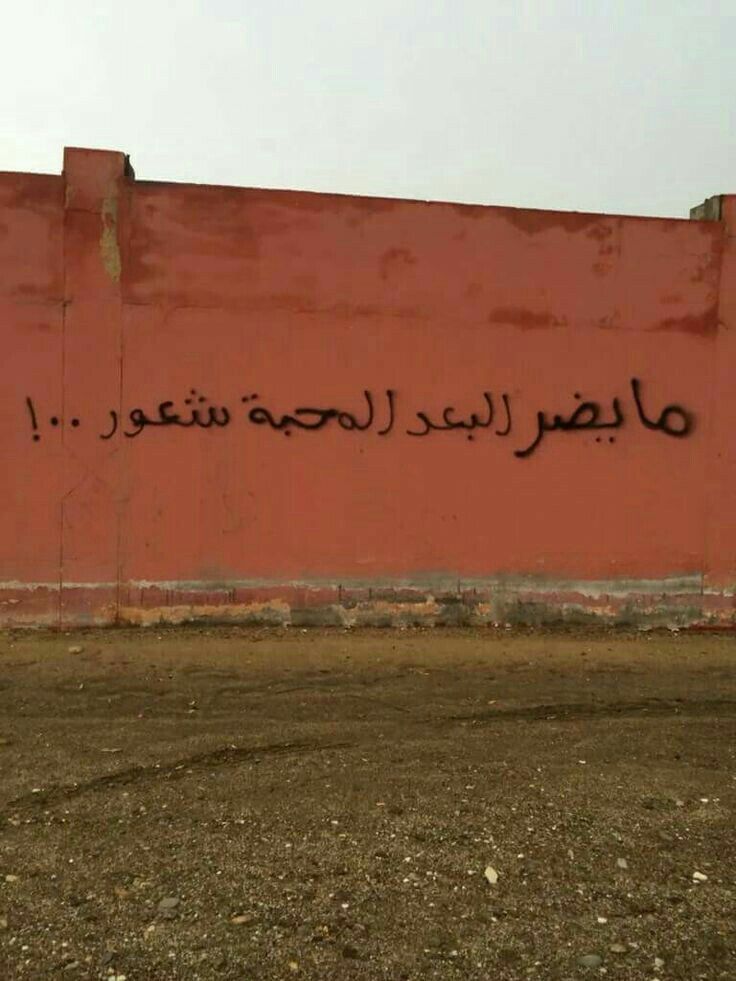 ما يضر البعد المحبة شعور ..!